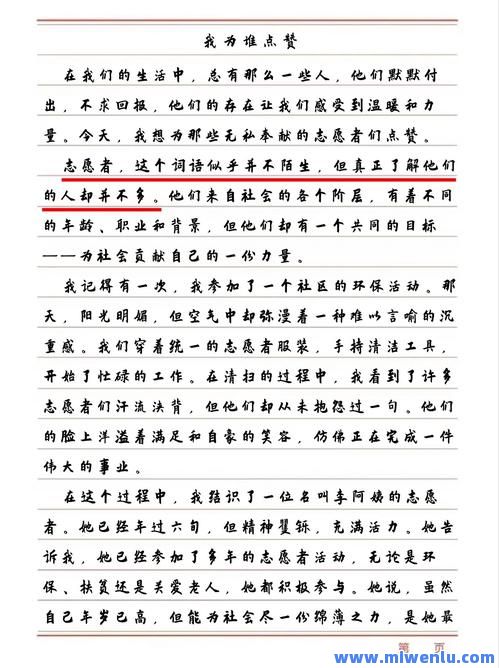 我为谁点赞
在我们的生活中，总有那么一些人，他们默默付
出，不求回报，他们的存在让我们感受到温暖和力
量。今天，我想为那些无私奉献的志愿者们点赞。
志愿者，这个词语似乎并不陌生，但真正了解他们
的人却并不多。他们来自社会的各个阶层，有着不同
的年龄、职业和背景，但他们却有一个共同的目标
——为社会贡献自己的一份力量。
我记得有一次，我参加了一个社区的环保活动。那
天，阳光明媚，但空气中却弥漫着一种难以言喻的沉
重感。我们穿着统一的志愿者服装，手持清洁工具，
开始了忙碌的工作。在清扫的过程中，我看到了许多
志愿者们汗流浃背，但他们却从未抱怨过一句。他们
的脸上洋溢着满足和自豪的笑容，仿佛正在完成一件
伟大的事业。
在这个过程中，我结识了一位名叫李阿姨的志愿
者。她已经年过六旬，但精神矍铄，充满活力。她告
诉我，她已经参加了多年的志愿者活动，无论是环
保、扶贫还是关爱老人，她都积极参与。她说，虽然
自己年岁已高，但能为社会尽一份绵薄之力，是她最
第 页
www.miwenlu.com